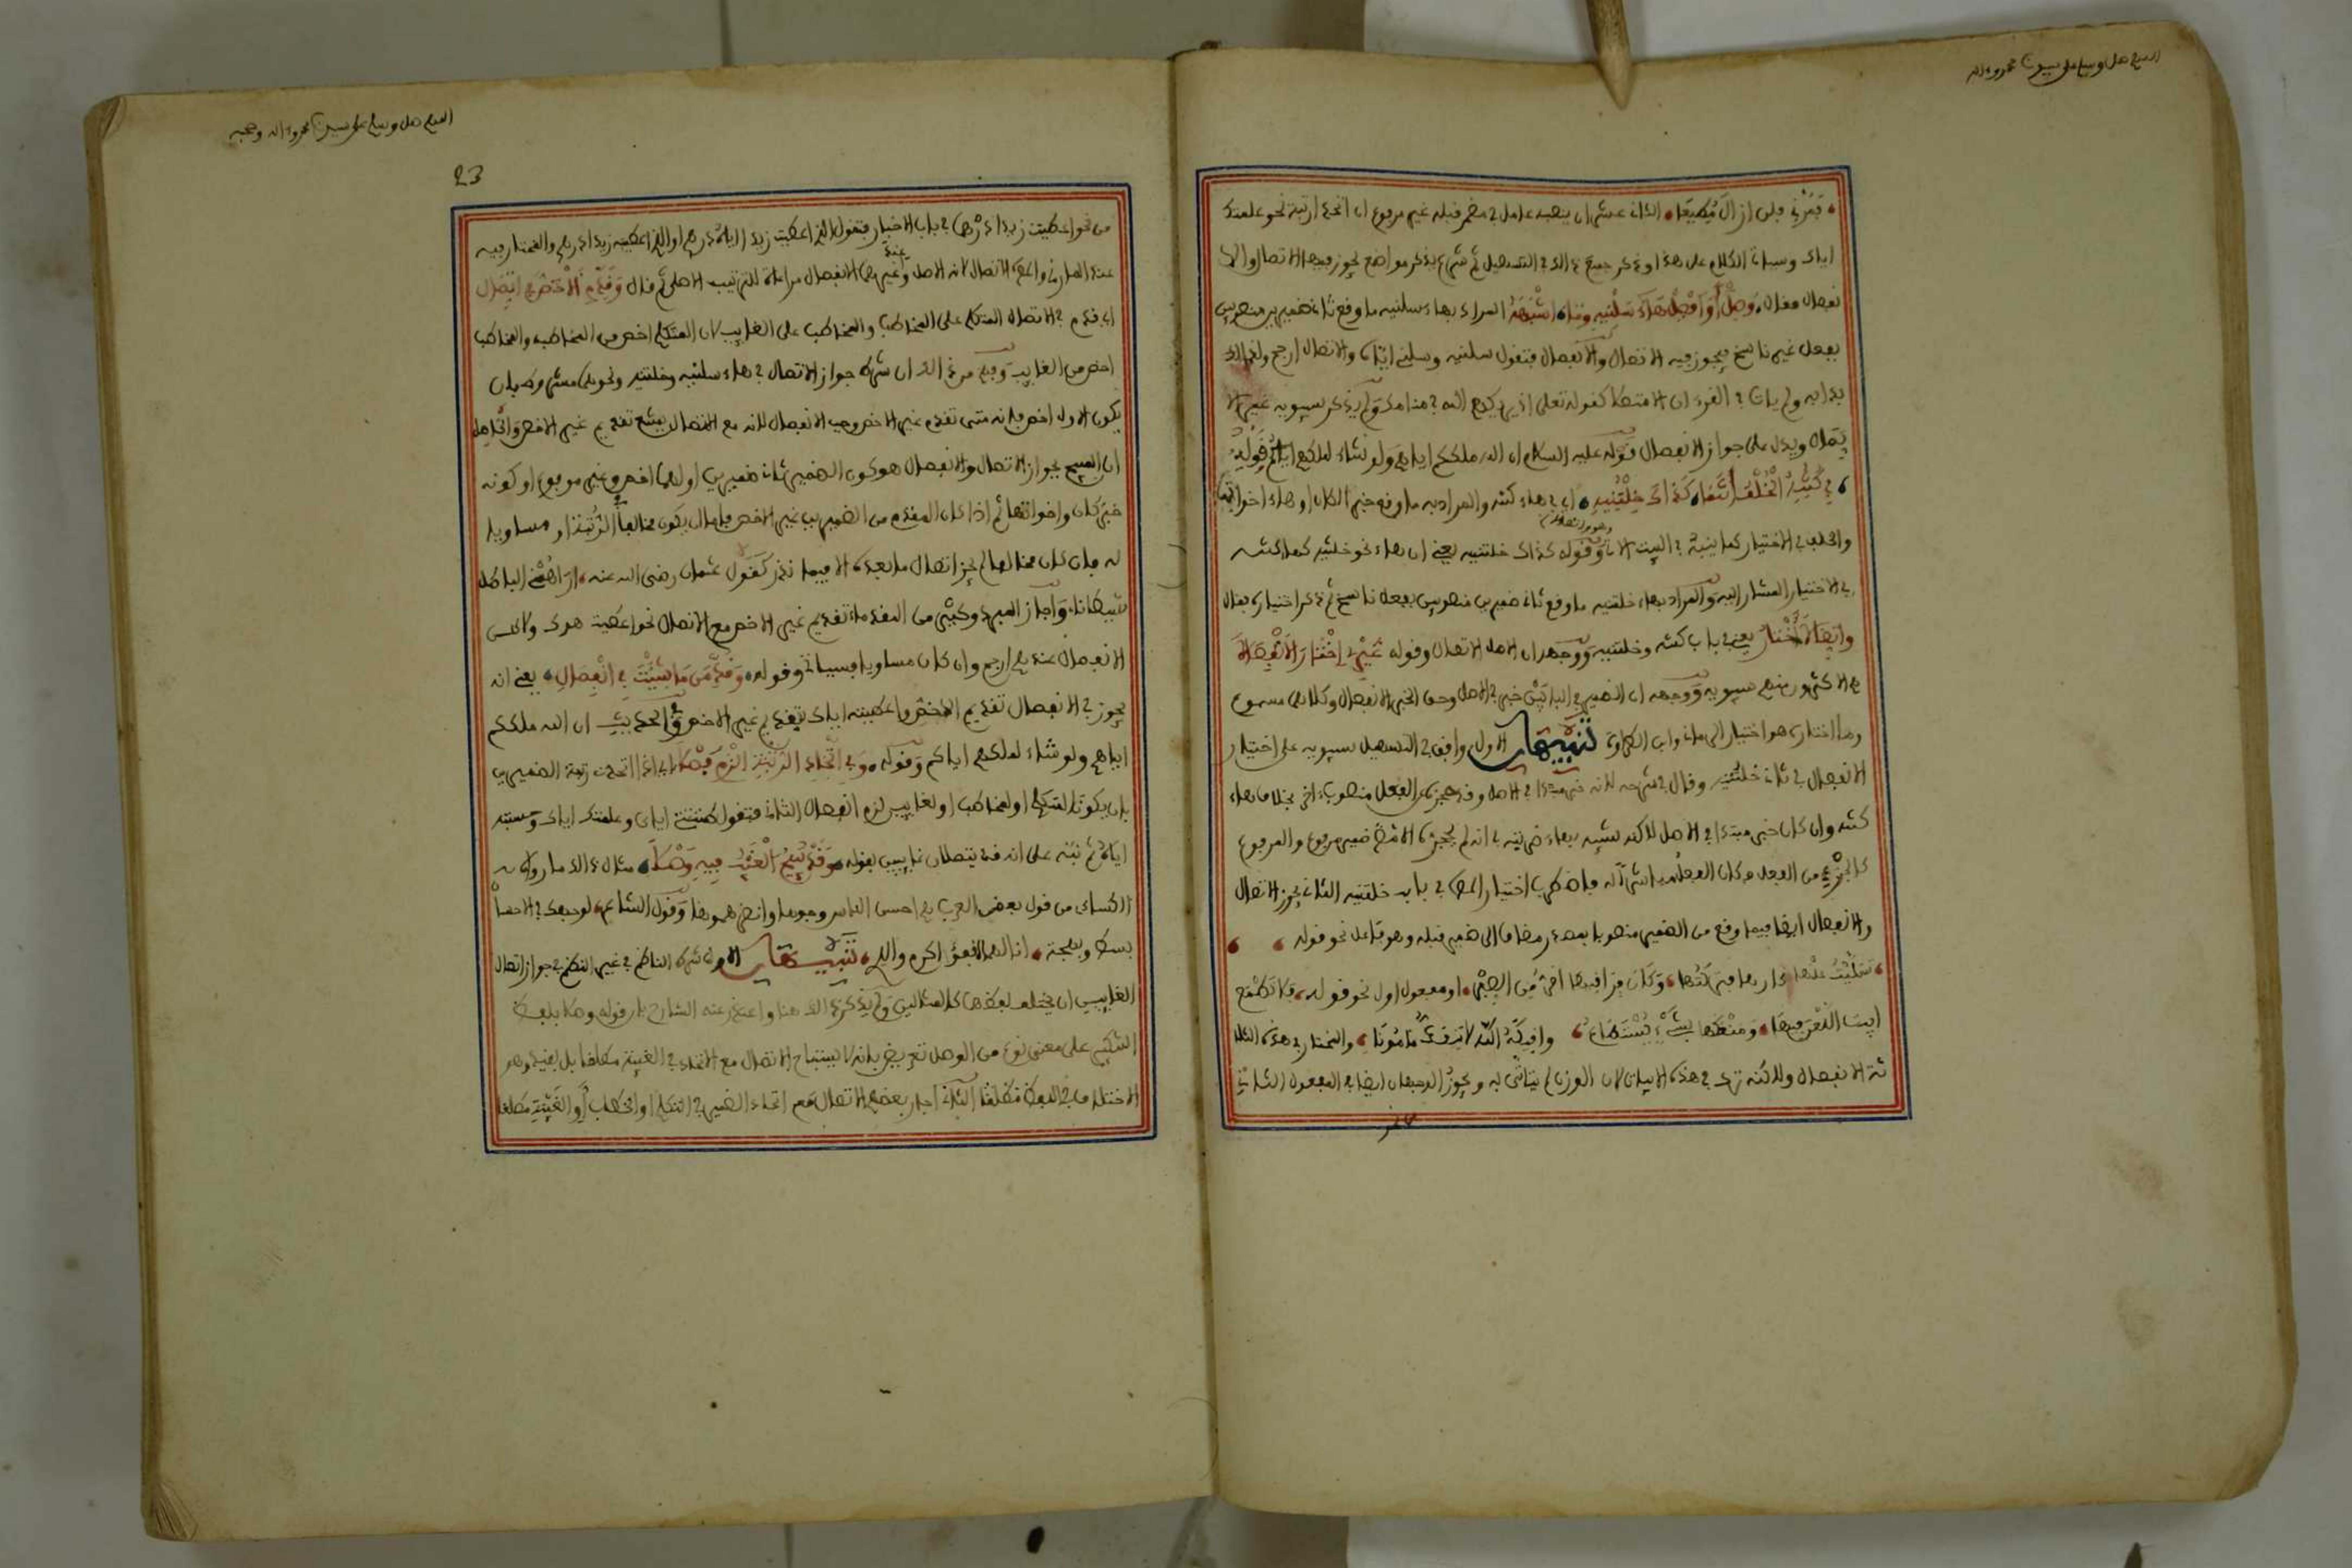 اللهم صل وسلم على سيدنا محمد وءاله
فمرني فلن ازال مطيعا الثاني عشر ان ينصبه عامل في مضمر قبله غير مرفوع ان اتحدا رتبة نحو علمتك
اياك وسياتي الكلام على هذا وذكر جميع ذلك في التسهيل ثم شرع يذكر مواضع يجوز فيها الاتصال والا
نفصال فقال وصل أو افصل هاء سلنيه وما اشبهه المراد بهاء سلنيه ما وقع ثاني ضميرين منصوبين
بفعل غير ناسخ فيجوز فيه الاتصال والانفصال فتقول سلنيه وسلني اياه والاتصال ارجح ولذلك
بدا به ولم يات في القرءان الا متصلا كقوله تعلى اذ يريكهم الله في منامك ولم يذكر سيبويه غير الا
تصال ويدل على جواز الانفصال قوله عليه السلام ان الله ملككم اياهم ولو شاء لملكهم اياكم قوله
في كنته الخلف انتمى كذاك خلتنيه اي في هاء كنته والمراد به ما وقع خبر الكان او هاء اخواتها
والخلف في الاختيار كما ينبه في البيت الاتي وقوله كذاك خلتنيه يعني ان هاء نحو خلتنيه كهاء كنته
في الاختيار المشار اليه والمراد بهاء خلتنيه ما وقع ثاني ضميرين منصوبين بفعل ناسخ ثم ذكر اختياره بقال
واتصالا أختار يعني في باب كنته وخلتنيه ووجهه ان الاصل الاتصال وقوله غيري اختار الانفصالا
هم الاكثرون منهم سيبويه ووجهه ان الضمير في البابين خبر في الاصل وحق الخبر الانفصال وكلاهما مسموع
وما اختاره هو اختيار الرماني وابن الطراوة تنبيهان الاول وافق في التسهيل سيبويه على اختيار
الانفصال في ثاني خلتنيه وقال في شرحه لانه خبر مبتدا في الاصل وقد حجزه عن الفعل منصوب ءاخر بخلاف هاء
كنته وان كان خبر مبتدا في الاصل لاكنه شبيه بهاء ضربته في انه لم يحجزه الا ضمير مرفوع والمرفوع
كالجزء من الفعل الثاني يجوز الاتصال
والانفصال ايضا فيما وقع من الضمير منصوبا بمصدر مضاف الى ضمير قبله وهو فاعل نحو قوله
وكان فراقيها امر من الصبر او مفعول اول نحو قوله فلا تطمع
ابيت اللعن فيها ومنعكها بشيء يستطاع والمختار في هذه الثلا
ثة الانفصال ولاكنه ترك في هذه الابيات لان الوزن لم يتاتى به ويجوز الوجهان ايضا في المفعول الثاني
من نحو
اللهم صل وسلم على سيدنا محمد وءاله وصحبه
23
من نحو اعطيت زيدا درهما في باب الاخبار فتقول الذي اعطيت زيدا اياه درهم او الذي اعطيته زيدا درهم والمختار فيه
عند المازني الاتصال لانه الاصل وعند غيرهما الانفصال مراعاة للترتيب الاصلي ثم قال وقدم الاخص في اتصال
اي قدم في الاتصال المتكلم على المخاطب والمخاطب على الغايب لان المتكلم اخص من المخاطب والمخاطب
اخص من الغايب وفهم من ذلك ان شرط جواز الاتصال في هاء سلنيه وخلتنيه ونحوهما مشروط بان
يكون الاول اخص فانه متى تقدم غير الاخص وجب الانفصال لانه مع الاتصال يمتنع تقديم غير الاخص والحاصل
ان المبيح بجواز الاتصال والانفصال هو كون الضمير ثاني ضميرين اولهما اخص وغير مرفوع او كونه
خبر كان واخواتها ثم اذا كان المقدم من الضميرين غير الاخص فاما ان يكون مخالفا في الرتبة او مساويا
له فان كان مخالفا لم يجز اتصال ما بعده الا فيما ندر كقول عثمان رضي الله عنه اراهمني الباطل
شيطانا واجاز المبرد وكثير من القدماء تقديم غير الاخص مع الاتصال نحو اعطيتهوك ولاكن
الانفصال عندهم ارجح وان كان مساويا فسياتي وقوله وقدمن ما شئت في انفصال يعني انه
يجوز في الانفصال تقديم الاخص واعطيته اياك بتقديم غير الاخص وفي الحديث ان الله ملككم
اياهم ولو شاء لملكهم اياكم وقوله وفي اتحاد الرتبة الزم فصلا اي اذا اتحدت رتبة الضميرين
بان يكونا لمتكلم او لمخاطب او لغايب لزم انفصال الثاني فتقول ظننتني اياي وعلمتك اياك وحسبته
اياه ثم نبه على انه قد يتصلان غايبين بقوله وقد يبيح الغيب فيه وصلا مثال ذلك ما رواه
الكسائي من قول بعض العرب هم احسن الناس وجوها وانضرهموها وقول الشاعر لوجهك في الاحسان
بسط وبهجة انالهماه قفو اكرم والد تنبيهان الاول شرط الناظم في غير النظم في جواز اتصال
الغايبين ان يختلف لفظهما كالمثالين ولم يذكر ذلك هنا واعتذر عنه الشارح بان قوله وصلا بلفظ
التنكير على معنى نوع من الوصل تعريض بانه لا يستباح الاتصال مع الاتحاد في الغيبة مطلقا بل بقيد وهو
الاختلاف في اللفظ الثاني اجاز بعضهم الاتصال مع اتحاد الضمير في التكلم او الخطاب أو الغيبة مطلقا